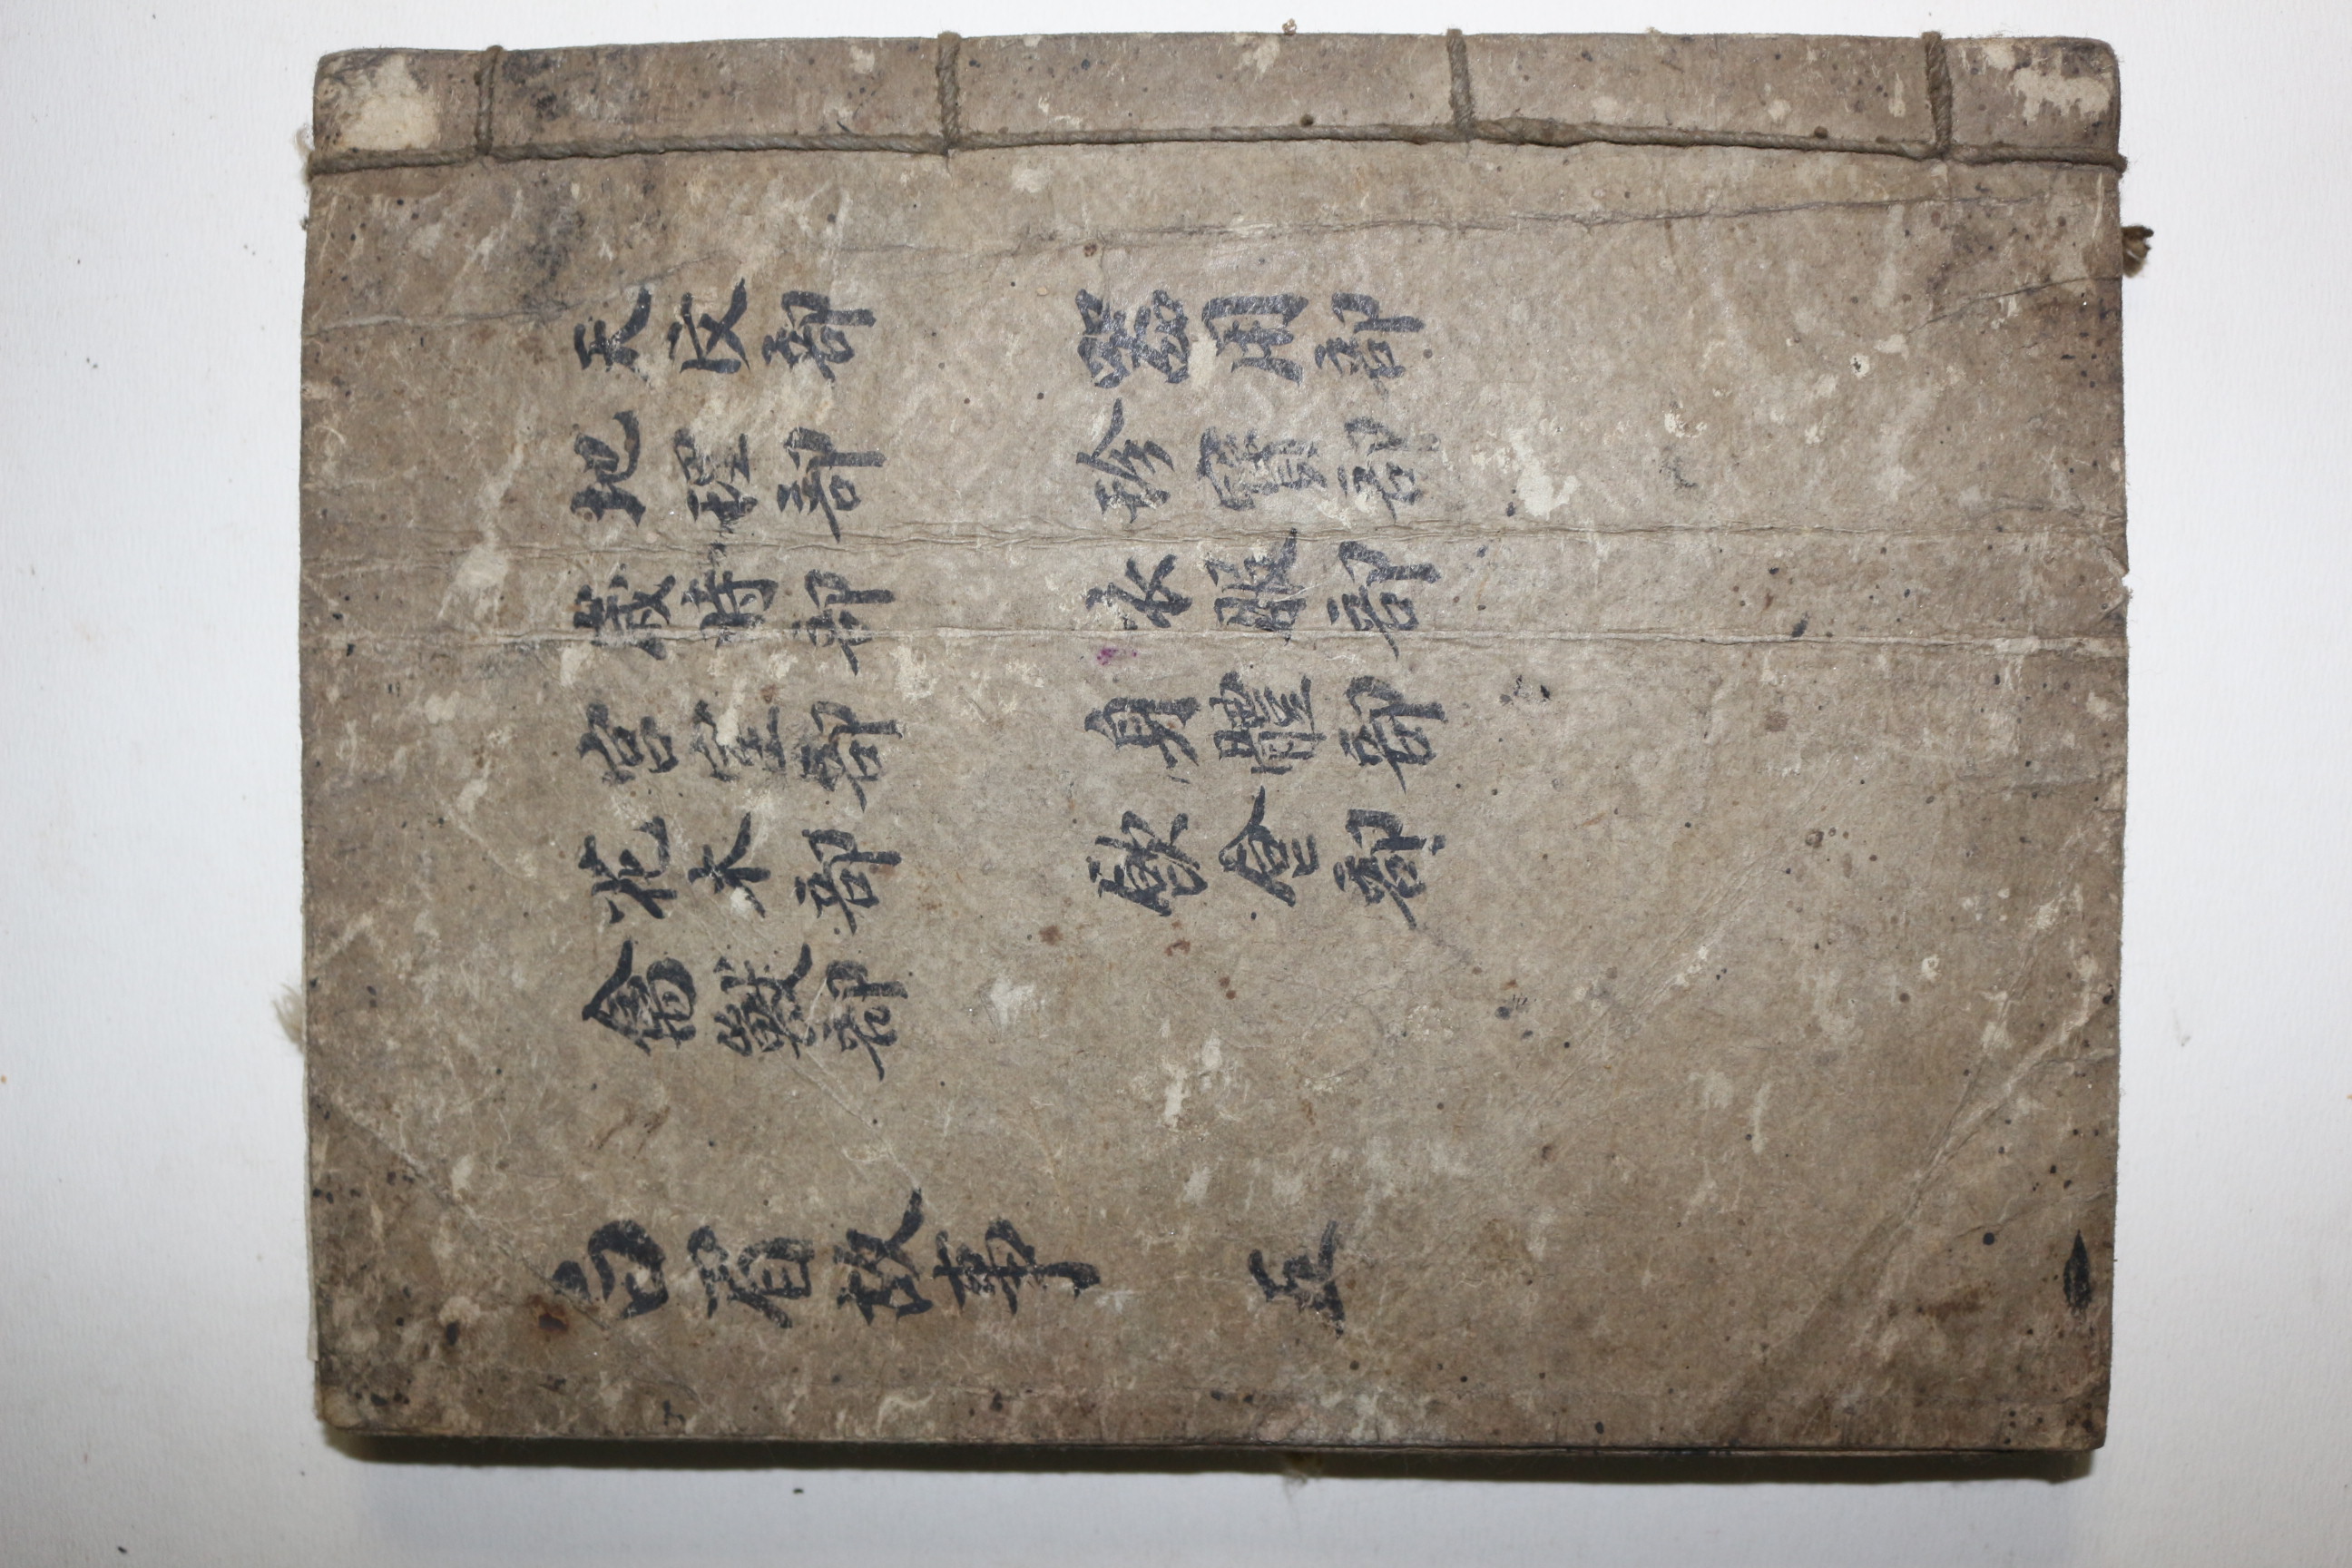 天文部
地理部
歲時部
宮室部
花木部
禽獸部
器用部
珍寶部
衣服部
身體部
飮食部
白眉故事 五